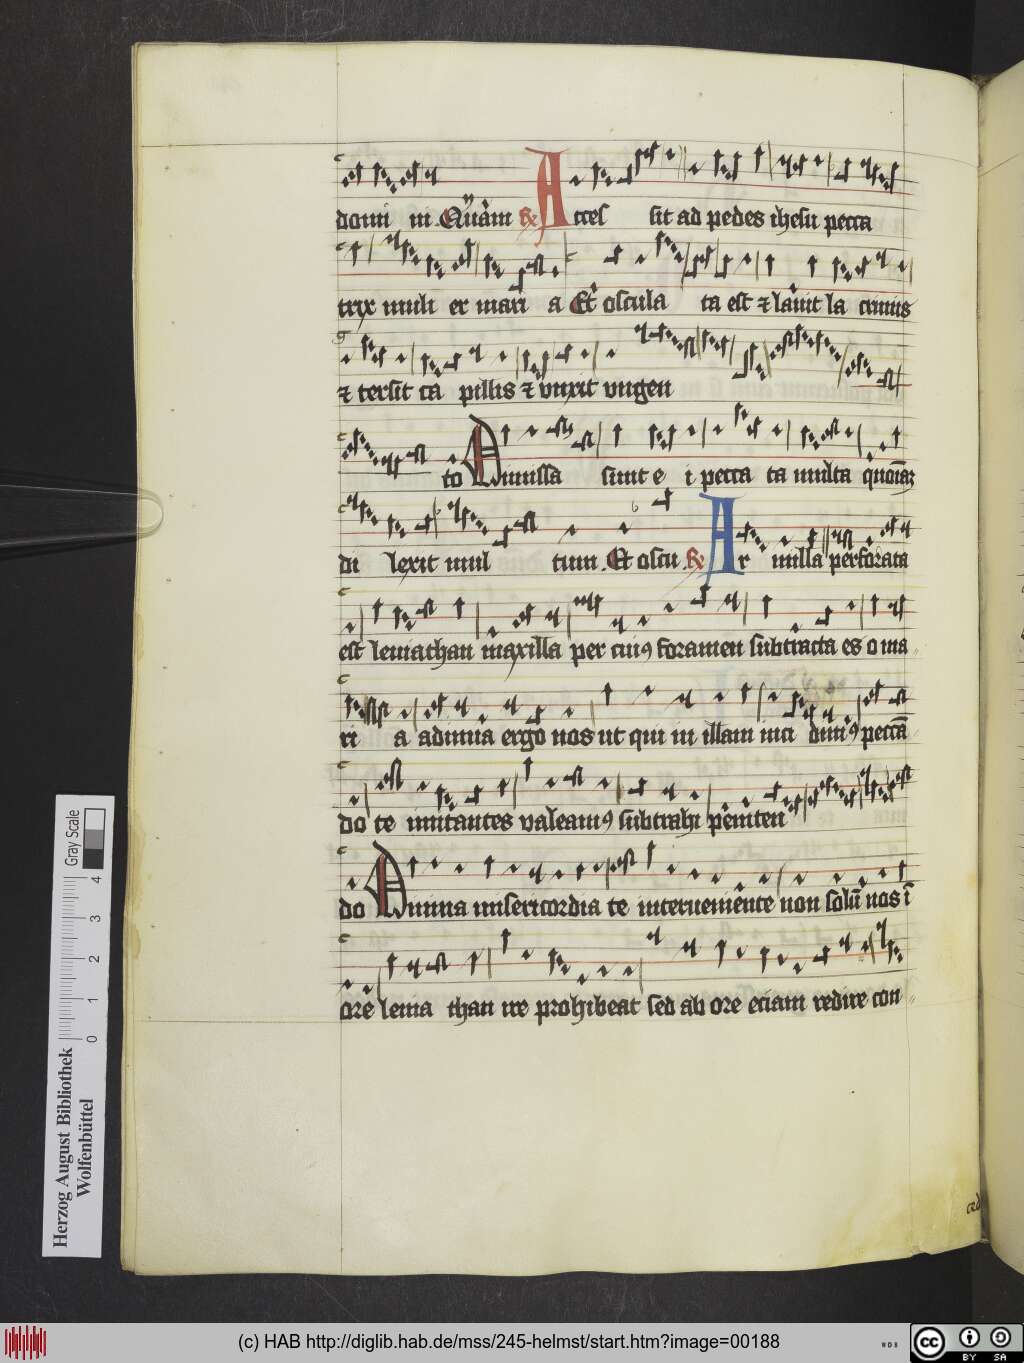 domi in Quam R Acces sit ad pedes ihesu pecca
trix muli er mari a Et oscula ta est ⁊ lauit la crimis
⁊ tersit ca pillis ⁊ vnxit vngen
to Dimissa sunt e i pecca ta multa quoniā
di lexit mul tum Et oscu R Ar milla perforata
est leuiathan maxilla per cuiꝯ foramen subtracta es o ma
ri a adiuua ergo nos ut qui in illam inci dimꝯ peccā
do te imitantes valeamꝯ subtrahi peniten
do Diuina misericordia te interueniente non solū nos ī
ore leuia than ire prohibeat sed ab ore eciam redire con
Herzog August Bibliothek
Wolfenbüttel
Gray Scale
0 1 2 3 4
(c) HAB http://diglib.hab.de/mss/245-helmst/start.htm?image=00188
WDB
cc BY SA